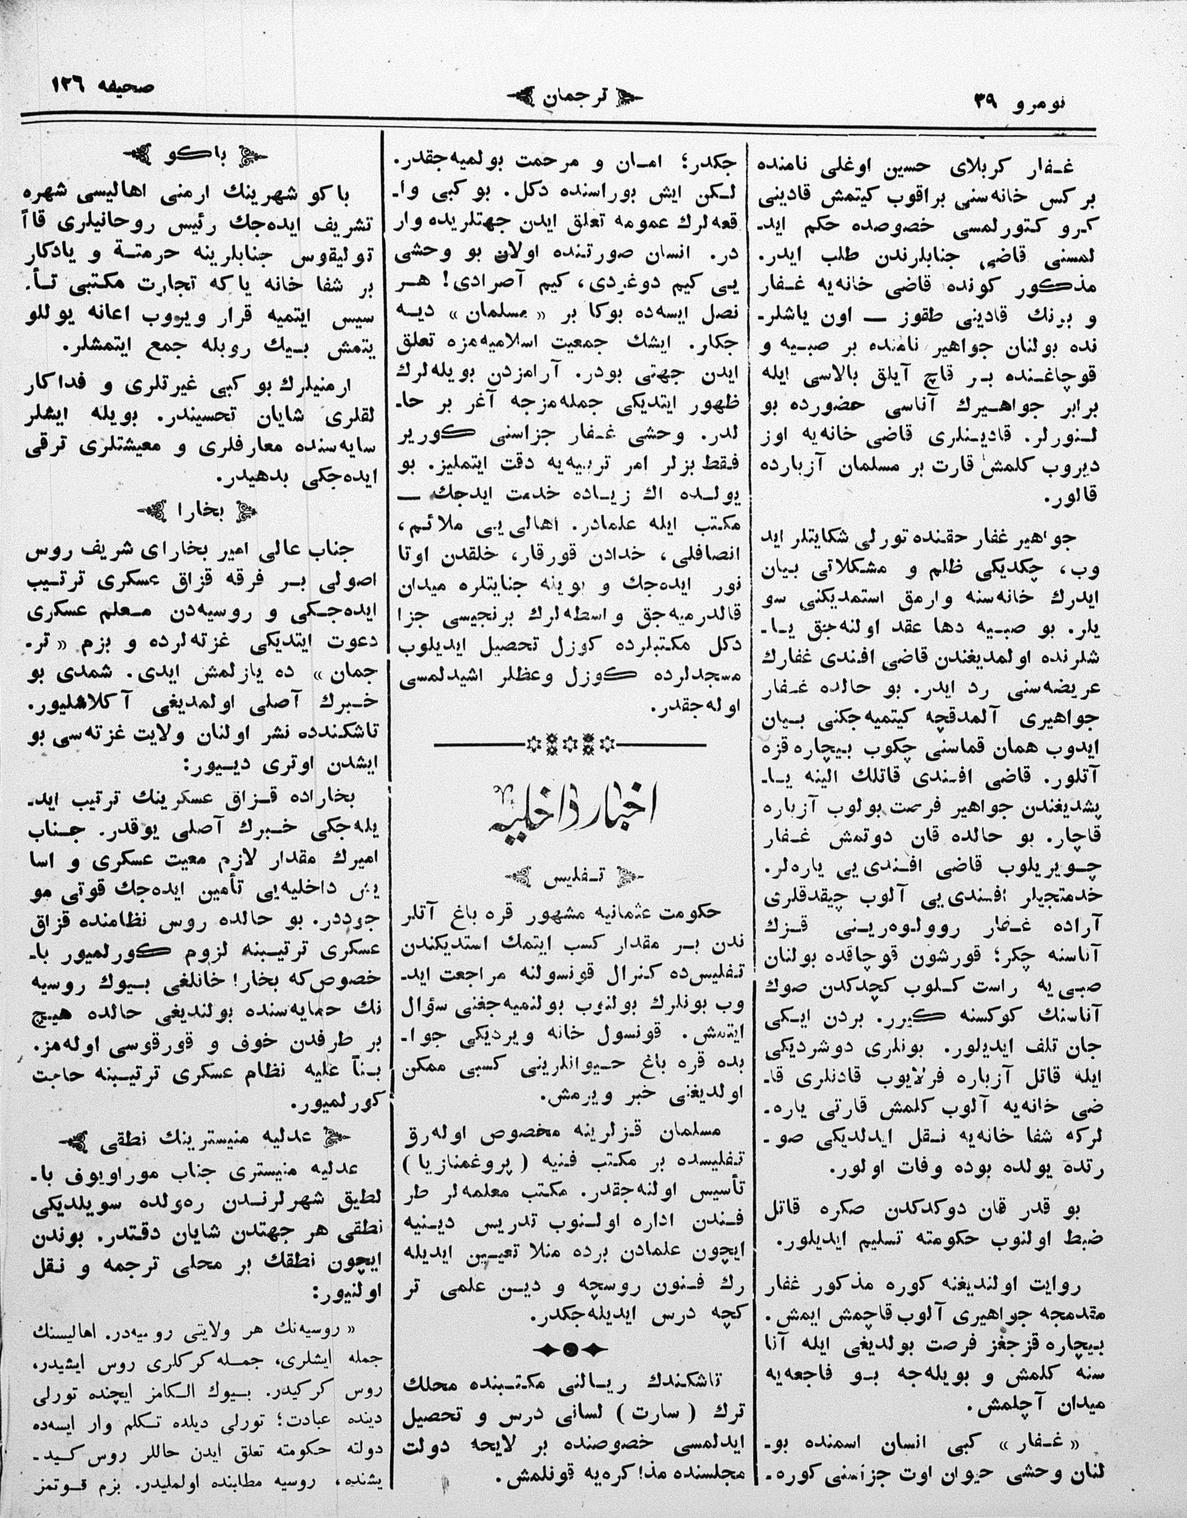 نومرو ٣٩
ترجمان
صحیفه ١٢٦
غـفار کربلای حسین اوغلی نامنده
بر کس خانه‌سنی براقوب کیتمش قادینی
کـرو کـتورلمسی خصوصده حکم ایدـ
لمسنی قاضی جنابلرندن طلب ایدر.
مذکور کونده قاضی خانه‌یه غـفار
و برنك قادینی طقوز — اون یاشلرـ
نده بولنان جواهیر نامنده بر صبـیه و
قوچاغـنده بـر قاچ آیلق بالاسی ایله
برابر جواهـیرك آناسی حضورده بو
لـنورلر. قادیـنلری قاضی خانه‌یه اوز
دیروب کلمش قارت بر مسلمان آزباره‌ده
قالور.
جواهیر غفار حقنده تورلی شکایتلر اید
وب، چکدیکی ظلم و مشکلاتی بیان
ایدرك خانه‌سنه وارمق استمدیکنی سو
یلر. بو صبـیه دها عقد اولنه‌جق یـاـ
شلرنده اولمدیغندن قاضی افـندی غفارك
عریضه‌سنی رد ایدر. بو حالده غـفار
جواهیری آلمدقچه کیتمیه‌جکنی بـیان
ایدوب همان قماسنی چکوب بـیچاره قزه
آتلور. قاضی افـندی قاتلك الینه یـاـ
پشدیغندن جواهیر فرصت بولوب آزباره
قاچار. بو حالده قان دوتمش غـفار
چـویریلوب قاضی افـندی‌یی یاره‌لر.
خدمتچیلر افـندی‌یی آلوب چیقدقلری
آراده غـفار روولوه‌ریـنی قـزك
آناسنه چکر؛ قورشون قوچاقده بولنان
صبی‌یه راست کـلوب کچدکدن صوك
آناسنك کوکسنه کیرر. بردن ایـکی
جان تلف ایدیلور. بونلری دوشردیکی
ایله قاتل آزباره فرلایوب قادنلری قاـ
ضی خانه‌یه آلوب کلمش قارتی یاره‌ـ
لرکه شفا خانه‌یه نـقل ایدلدیکی صوـ
رتده یولده بوده وفات اولور.
بو قدر قان دوکدکدن صکره قاتل
ضبط اولنوب حکومته تسلیم ایدیلور.
روایت اولندیغنه کوره مذکور غفار
مقدمجه جواهیری آلوب قاچمش ایمش.
بـیچاره قزجغز فرصت بولدیغی ایله آنا
سنه کلمش و بویله‌جه بـو فاجعه‌یه
میدان آچلمش.
« غـفار » کبی انسان اسمنده بوـ
لنان وحشی حیوان اوت جزاسنی کوره‌ـ
جکدر؛ امـان و مرحمت بولمیه‌جقدر.
لـکن ایش بوراسنده دکل. بو کبی واـ
قعه‌لرك عمومه تعلق ایدن جهتلریده وار
در. انسان صورتـنده اولان بو وحشی
یی کیم دوغردی، کیم آصرادی! هـر
نصل ایسه‌ده بوکا بر « مسلمان » دیـه
جکلر. ایشك جمعیت اسلامیه‌مزه تعلق
ایدن جهتی بودر. آرامزدن بویله‌لرك
ظهور ایتدیکی جمله‌مزجه آغر بر حاـ
لدر. وحشی غـفار جزاسنی کـوریر
فـقط بزلر امر تربیه‌یه دقت ایتملیز. بو
یولـده اك زیـاده خدمت ایدجك —
مکتب ایله علمادر. اهالی‌یی ملائـم،
انصافلی، خدادن قورقار، خلقدن اوتا
نور ایده‌جك و بویله جنایتلره میدان
قالدرمیه‌جق واسطه‌لرك برنجیسی جزا
دکل مکتبلرده کوزل تحصیل ایدیلوب
مسجدلرده کـوزل وعظلر اشیدلمسی
اوله‌جقدر.
اخبار داخلیه
تـفلیس
حکومت عثمانیه مشهور قره باغ آتلر
ندن بـر مقدار کسب ایتمك استدیکندن
تـفلیس‌ده کنرال قونسولنه مراجعت ایدـ
وب بونلرك بولنوب بولنمیه‌جغنی سؤال
ایتمش. قونسول خانه ویردیکی جواـ
بده قره باغ حـیوانلرینی کسبی ممکن
اولدیغنی خبر ویرمش.
مسلمان قـزلرینه مخصوص اوله‌رق
تـفلیسده بر مکتب فنیه ( پروغمنازیا )
تأسیس اولنه‌جقدر. مکتب معلمه‌لر طر
فـندن اداره اولـنوب تدریس دیـنیه
ایچون علمادن برده منلا تعیـین ایدیله
رك فـنون روسچه و دیـن علمی تر
کچه درس ایدیله‌جکدر.
تاشکندك ریـالنی مکتـبنده محلك
ترك ( سارت ) لسانی درس و تحصیل
ایدلمسی خصوصنده بر لایحه دولت
مجلسنده مذاکره‌یه قونلمش.
باکو
باکو شهرینك ارمنی اهالیسی شهره
تشریف ایده‌جك رئیس روحانیلری قاآ
تولیقوس جنابلرینه حرمتـة و یادکار
بر شفا خانه یاکه تجارت مکـتبی تـأـ
سیس ایتمیه قرار ویروب اعانه یوللو
یتمش بـیك روبله جمع ایتمشلر.
ارمنیلرك بو کبی غیرتلری و فداکار
لقلری شایان تحسیندر. بویله ایشلر
سایه‌سنده معارفلری و معیشتلری ترقی
ایده‌جکی بدهیدر.
بخارا
جناب عالی امیر بخارای شریف روس
اصولی بـر فرقه قزاق عسکری ترتـیب
ایده‌جـکی و روسیه‌دن مـعلم عسکری
دعوت ایتدیکی غزته‌لرده و بزم « ترـ
جمان » ده یازلمش ایدی. شمدی بو
خـبرك آصلی اولمدیغی آکلاشلیور.
تاشکندده نشر اولنان ولایت غزته‌سی بو
ایشدن اوتری دیـیور:
بخاراده قـزاق عسکرینك ترتیب ایدـ
یله‌جکی خـبرك آصلی یوقدر. جـناب
امیرك مقدار لازم معیت عسکری و اسا
یش داخلیه‌یی تأمین ایده‌جك قوتی مو
جوددر. بو حالده روس نظامنده قزاق
عسکری ترتیـبنه لزوم کـورلمیور باـ
خصوص‌که بخارا خانلغی بـیوك روسیه
نك حمایه‌سنده بولندیغی حالده هیـچ
بر طرفدن خوف و قورقوسی اوله‌مز.
بـنآ علیه نظام عسکری ترتیـبنه حاجت
کورلمیور.
عدلیه منیسترینك نطقی
عدلیه منیستری جناب موراویوف باـ
لطیق شهرلرنـدن ره‌ولده سویلدیکی
نطقی هر جهتدن شایان دقـتدر. بوندن
ایچون نطقك بر محلی ترجمه و نـقل
اولنیور:
« روسیه‌نك هر ولایتی روسیه‌در. اهالیسنك
جمله ایشلری، جمـله کرکلری روس ایشیدر،
روس کرکیدر. بـیوك الـکامز ایچنده تورلی
دینده عبادت؛ تورلی دیلده تـکلم وار ایسه‌ده
دولته حکومته تعلق ایدن حاللر روس کـیدـ
یشنده، روسیه مطلبنده اولملیدر. بزم قـوتمز